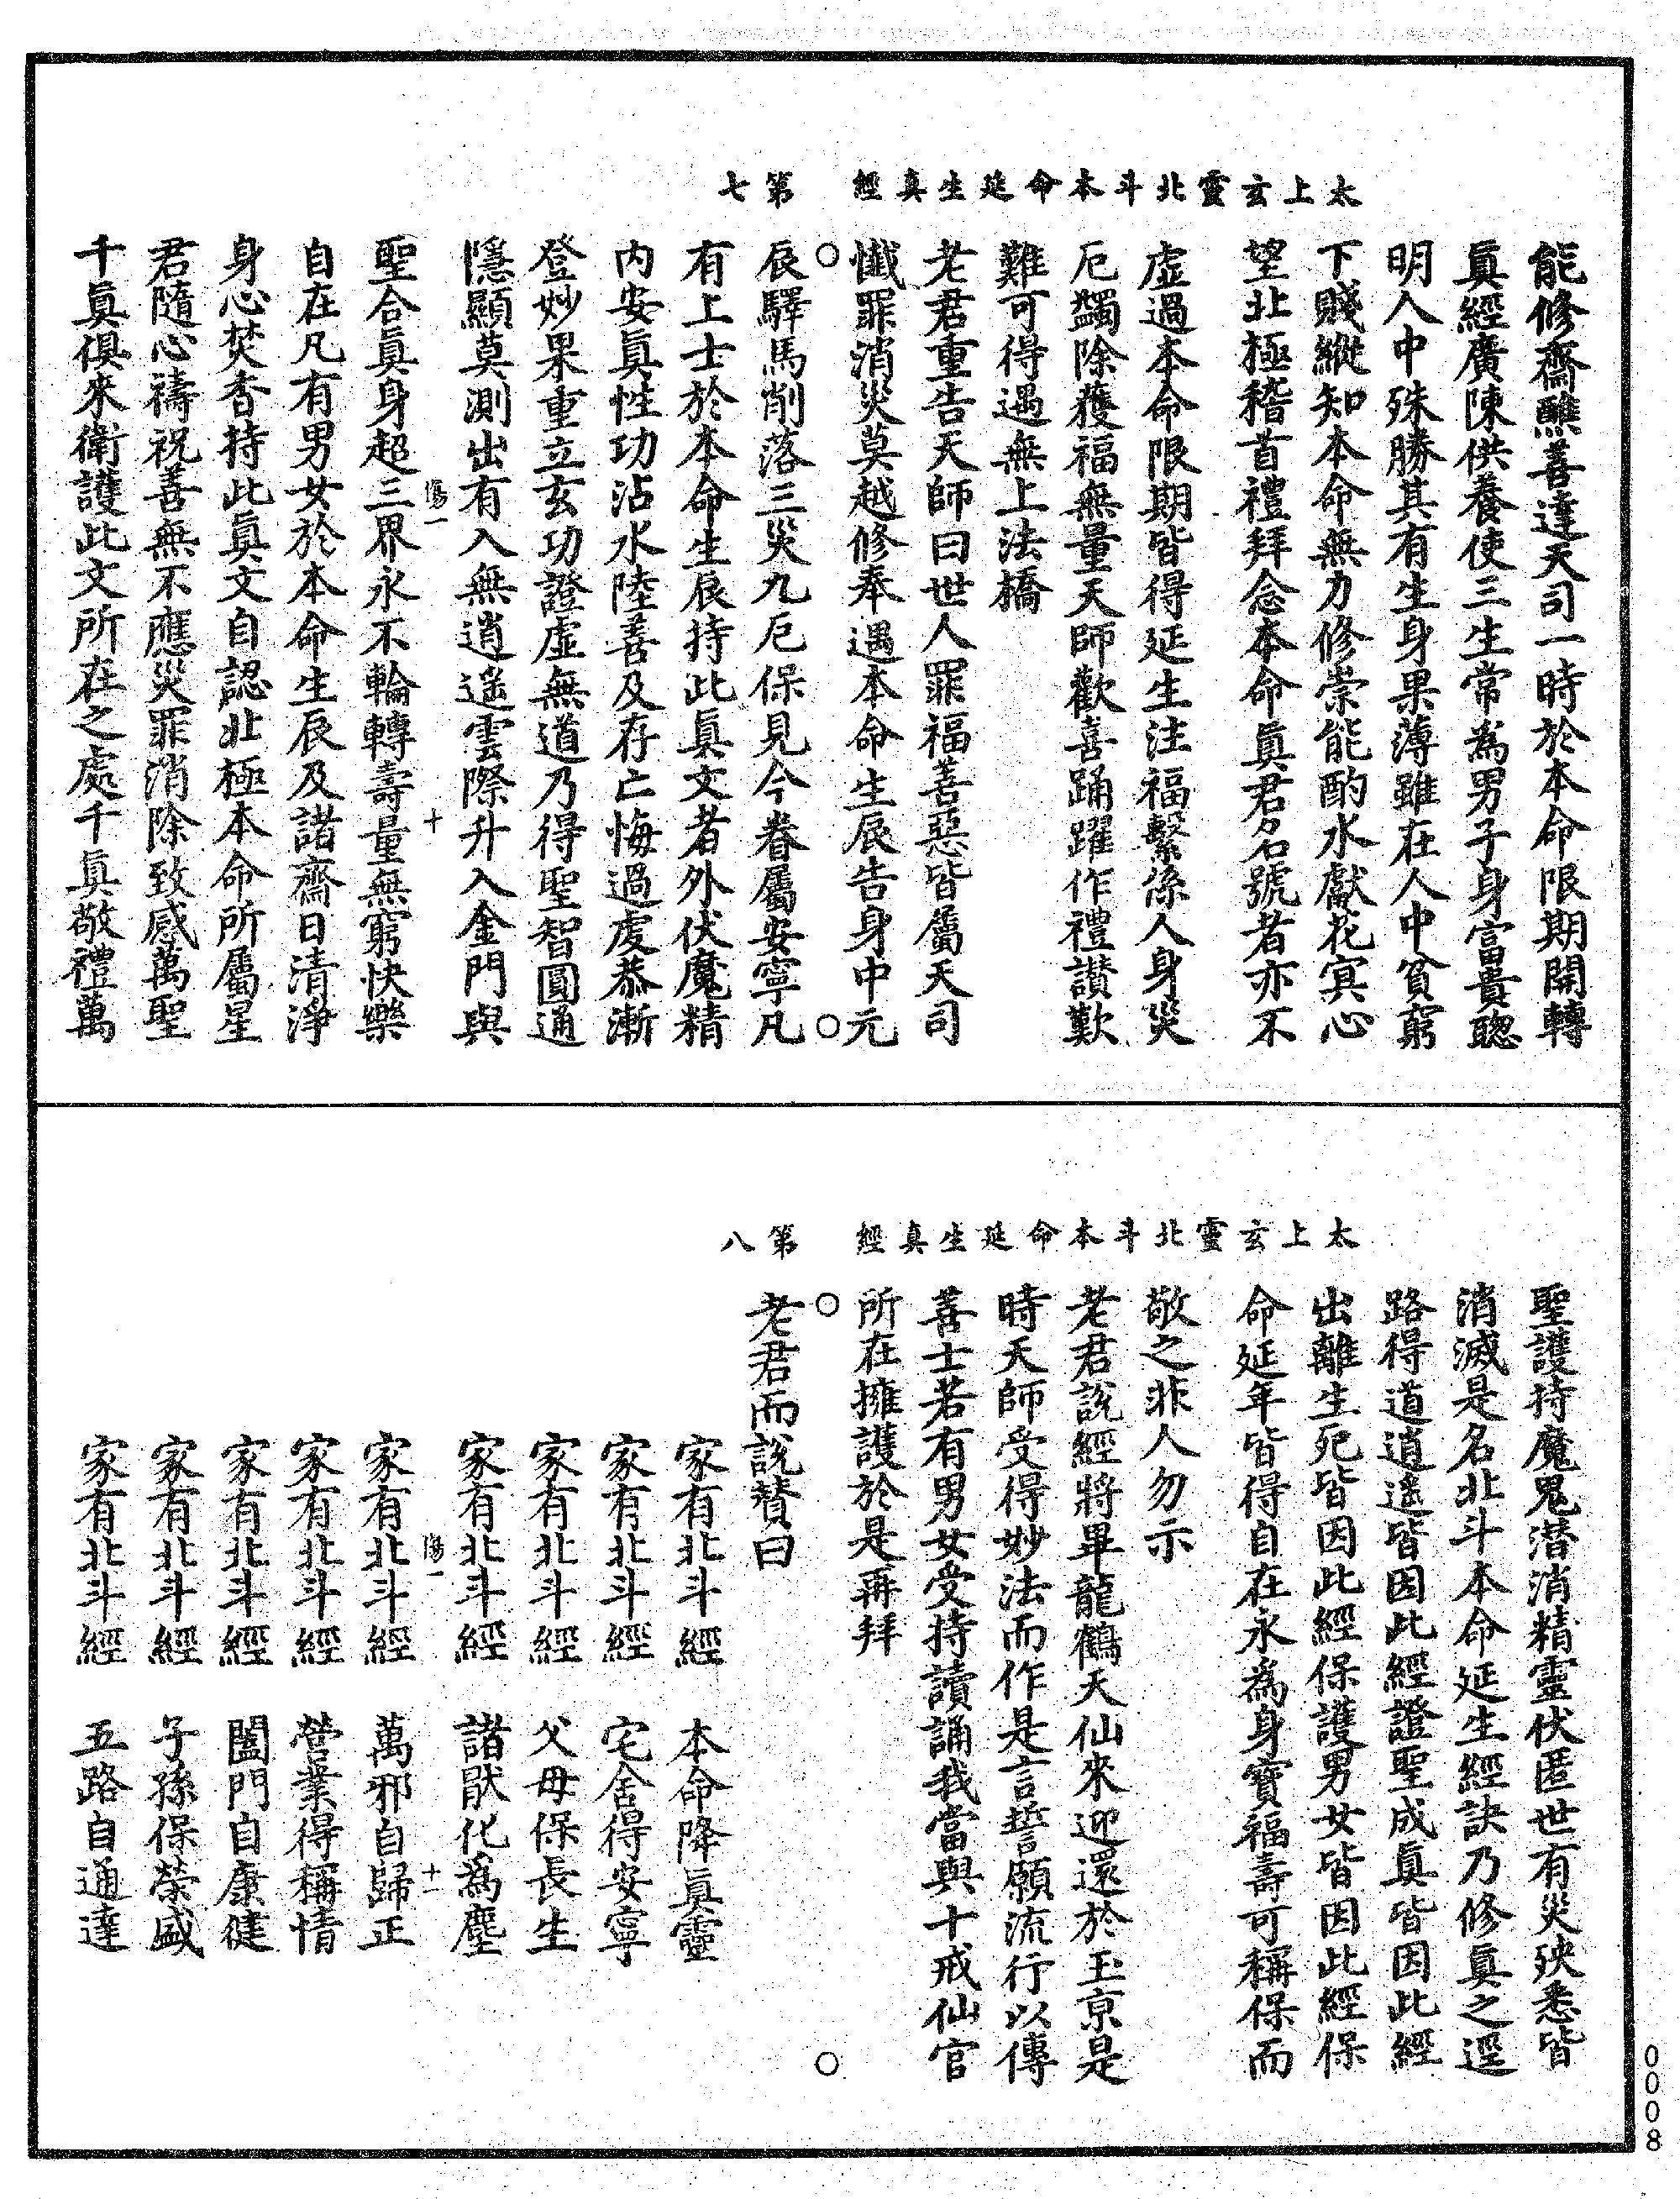 太上玄靈北斗本命延生真經　第七
能修齋醮善達天司一時於本命限期開轉
真經廣陳供養使三生常為男子身富貴聦
明人中殊勝其有生身果薄雖在人中貧窮
下賤縱知本命無力修崇能酌水獻花冥心
望北極稽首禮拜念本命真君名號者亦不
虛過本命限期皆得延生注福繫係人身災
厄蠲除獲福無量天師歡喜踊躍作禮讃歎
難可得遇無上法橋
老君重告天師曰世人罪福善惡皆屬天司
懺罪消災莫越修奉遇本命生辰告身中元
辰驛馬削落三災九厄保見今眷屬安寧凡
有上士於本命生辰持此真文者外伏魔精
内安真性功沾水陸善及存亡悔過虔恭漸
登妙果重立玄功證虛無道乃得聖智圓通
隱顯莫測出有入無逍遥雲際升入金門與
傷一　十
聖合真身超三界永不輪轉壽量無窮快樂
自在凡有男女於本命生辰及諸齋日清淨
身心焚香持此真文自認北極本命所屬星
君隨心禱祝善無不應災罪消除致感萬聖
千真俱來衛護此文所在之處千真敬禮萬
太上玄靈北斗本命延生真經　第八
聖護持魔鬼潜消精靈伏匿世有災殃悉皆
消滅是名北斗本命延生經訣乃修真之逕
路得道逍遥皆因此經證聖成真皆因此經
出離生死皆因此經保護男女皆因此經保
命延年皆得自在永為身寶福壽可稱保而
敬之非人勿示
老君說經將畢龍鶴天仙來迎還於玉京是
時天師受得妙法而作是言誓願流行以傳
善士若有男女受持讀誦我當與十戒仙官
所在擁護於是再拜
老君而說賛曰
家有北斗經　本命降真靈
家有北斗經　宅舍得安寧
家有北斗經　父母保長生
家有北斗經　諸猒化為塵
傷一　十一
家有北斗經　萬邪自歸正
家有北斗經　營業得稱情
家有北斗經　闔門自康健
家有北斗經　子孫保榮盛
家有北斗經　五路自通達
0008